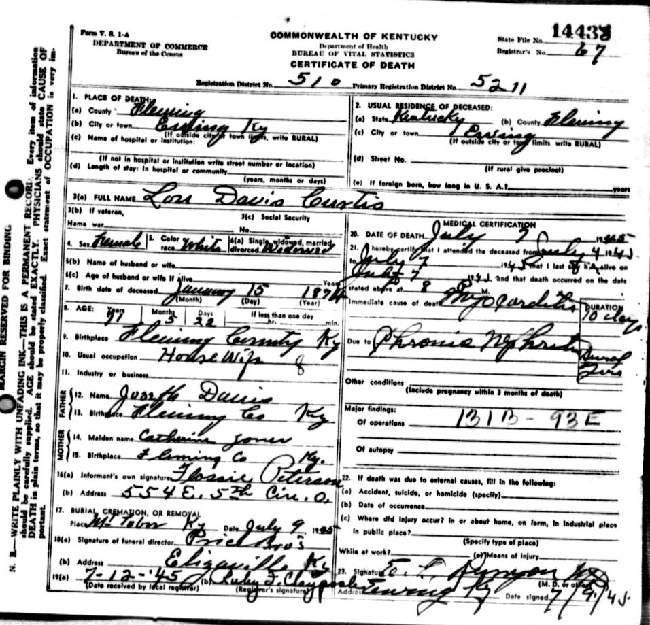 Form V. S. 1-A
DEPARTMENT OF COMMERCE
Bureau of the Census
COMMONWEALTH OF KENTUCKY
Department of Health
BUREAU OF VITAL STATISTICS
CERTIFICATE OF DEATH
State File No. 14438
Registrar's No. 67
Registration District No. 510 Primary Registration District No. 5211
1. PLACE OF DEATH:
(a) County Fleming
(b) City or town Ewing Ky
(If outside city or town limits, write RURAL)
(c) Name of hospital or institution:
(If not in hospital or institution write street number or location)
(d) Length of stay: In hospital or community
(years, months or days)
2. USUAL RESIDENCE OF DECEASED:
(a) State Kentucky (b) County Fleming
(c) City or town Ewing
(If outside city or town limits write RURAL)
(d) Street No.
(If rural give precinct)
(e) If foreign born, how long in U. S. A.? years
3(a) FULL NAME Lou Davis Curtis
3(b) If veteran, Name war
3(c) Social Security No.
4. Sex Female 5. Color or race White 6(a) Single, widowed, married, divorced Widowed
6(b) Name of husband or wife
6(c) Age of husband or wife if alive Years
7. Birth date of deceased January 15
(Month) (Day) (Year)
8. AGE: Months Days 22 If less than one day
hr. min.
9. Birthplace Fleming County Ky
10. Usual occupation House Wife
11. Industry or business
FATHER
12. Name Joseph Davis
13. Birthplace Fleming Co Ky
MOTHER
14. Maiden name Catherine Jones
15. Birthplace Fleming Co Ky.
16(a) Informant's own signature Flossie Peterson
(b) Address 554 E. 5th Cin. O.
17. BURIAL, CREMATION, OR REMOVAL
Place Mt Tabor Ky Date July 9 1945
18(a) Signature of funeral director Price Bros
(b) Address Elizaville Ky
19(a) 7-12-'45 (b) Ruby F.
(Date received by local registrar) (Registrar's signature)
MEDICAL CERTIFICATION
20. DATE OF DEATH July 7 1945
21. I hereby certify that I attended the deceased from July 4 1945
to July 7 1945 that I last saw alive on
July 7 and that death occurred on the date
stated above at 8
Immediate cause of death Myocarditis
DURATION
10 days
Due to Chronic Nephritis
Other conditions
(Include pregnancy within 3 months of death)
Major findings:
Of operations 131B-93E
Of autopsy
22. If death was due to external causes, fill in the following:
(a) Accident, suicide, or homicide (specify)
(b) Date of occurrence
(c) Where did injury occur? in or about home, on farm, in industrial place
in public place?
(Specify type of place)
While at work? (e) Means of injury
23. Signature
Address Ewing Ky Date signed 7/9/45
MARGIN RESERVED FOR BINDING.
N. B.—WRITE PLAINLY WITH UNFADING INK—THIS IS A PERMANENT RECORD. Every item of information
should be carefully supplied. AGE should be stated EXACTLY. PHYSICIANS should state CAUSE OF
DEATH in plain terms, so that it may be properly classified. Exact statement of OCCUPATION is very im-
portant.